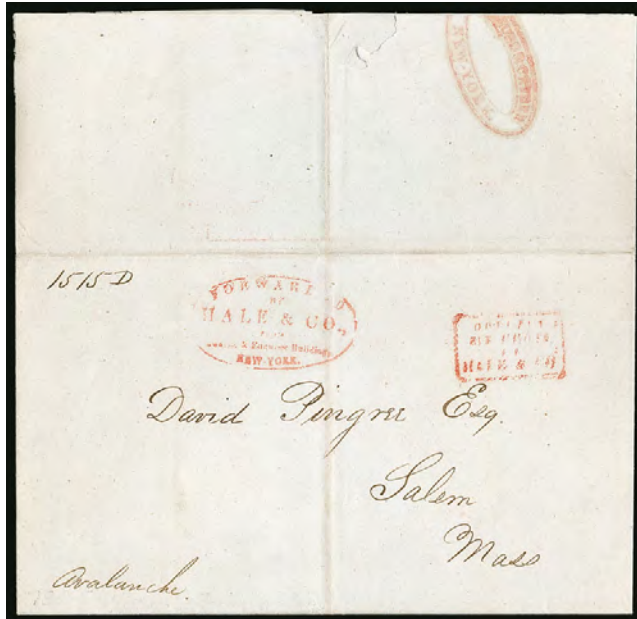 NEW-YORK
1515 D
FORWARD
BY
HALE & CO.,
FROM
& Farmer Buildings
NEW-YORK.
COLLECT
SIX CENTS
HALE & CO
David Pingree Esq.
Salem
Mass
Avalanche.